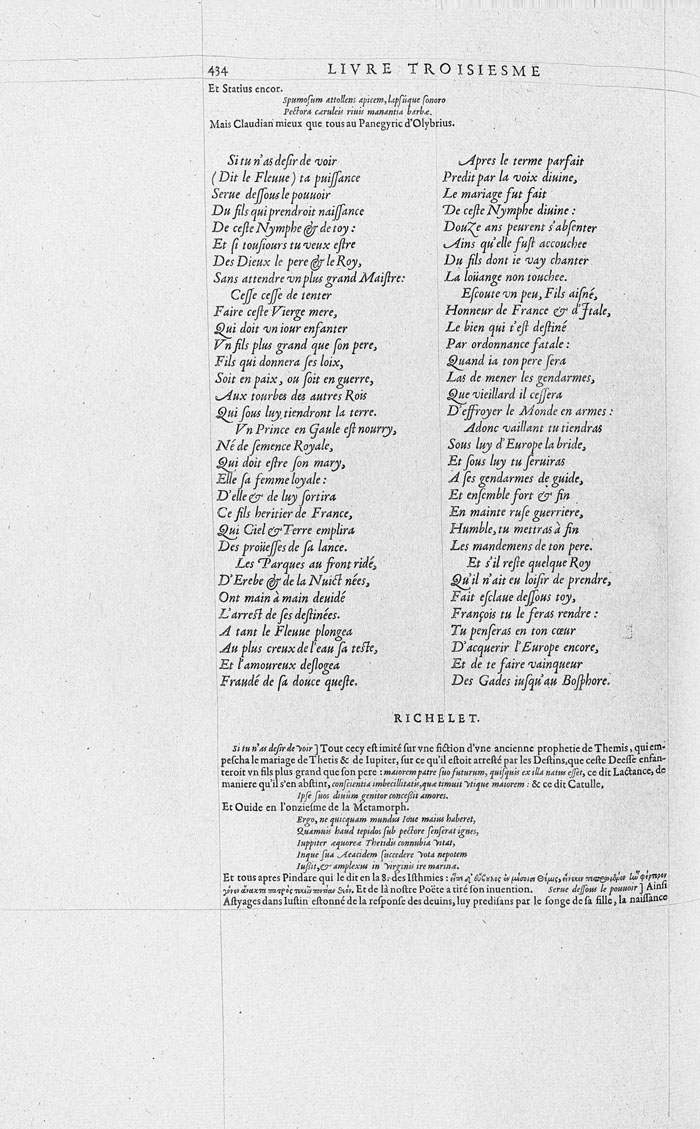 434 LIVRE TROISIESME
Et Statius encor.
Spumosum attollens apicem, lapsúque sonoro
Pectora cæruleis riuis manantia barbæ.
Mais Claudian mieux que tous au Panegyric d'Olybrius.
Si tu n'as desir de voir
(Dit le Fleuue) ta puissance
Serue dessous le pouuoir
Du fils qui prendroit naissance
De ceste Nymphe & de toy:
Et si tousiours tu veux estre
Des Dieux le pere & le Roy,
Sans attendre vn plus grand Maistre:
Cesse cesse de tenter
Faire ceste Vierge mere,
Qui doit vn iour enfanter
Vn fils plus grand que son pere,
Fils qui donnera ses loix,
Soit en paix, ou soit en guerre,
Aux tourbes des autres Rois
Qui sous luy tiendront la terre.
Vn Prince en Gaule est nourry,
Né de semence Royale,
Qui doit estre son mary,
Elle sa femme loyale:
D'elle & de luy sortira
Ce fils heritier de France,
Qui Ciel & Terre emplira
Des proüesses de sa lance.
Les Parques au front ridé,
D'Erebe & de la Nuict nées,
Ont main à main deuidé
L'arrest de ses destinées.
A tant le Fleuue plongea
Au plus creux de l'eau sa teste,
Et l'amoureux deslogea
Fraudé de sa douce queste.
Apres le terme parfait
Predit par la voix diuine,
Le mariage fut fait
De ceste Nymphe diuine:
Douze ans peurent s'absenter
Ains qu'elle fust accouchee
Du fils dont ie vay chanter
La loüange non touchee.
Escoute vn peu, Fils aisné,
Honneur de France & d'Itale,
Le bien qui t'est destiné
Par ordonnance fatale:
Quand ia ton pere sera
Las de mener les gendarmes,
Que vieillard il cessera
D'effroyer le Monde en armes:
Adonc vaillant tu tiendras
Sous luy d'Europe la bride,
Et sous luy tu seruiras
A ses gendarmes de guide,
Et ensemble fort & fin
En mainte ruse guerriere,
Humble, tu mettras à fin
Les mandemens de ton pere.
Et s'il reste quelque Roy
Qu'il n'ait eu loisir de prendre,
Fait esclaue dessous toy,
François tu le feras rendre:
Tu penseras en ton cœur
D'acquerir l'Europe encore,
Et de te faire vainqueur
Des Gades iusqu'au Bosphore.
RICHELET.
Si tu n'as desir de voir] Tout cecy est imité sur vne fiction d'vne ancienne prophetie de Themis, qui em-
pescha le mariage de Thetis & de Iupiter, sur ce qu'il estoit arresté par les Destins, que ceste Deesse enfan-
teroit vn fils plus grand que son pere: maiorem patre suo futurum, quisquis ex illa natus esset, ce dit Lactance, de
maniere qu'il s'en abstint, conscientia imbecillitatis, quæ timuit vtique maiorem: & ce dit Catulle,
Ipse suos diuûm genitor concessit amores.
Et Ouide en l'onziesme de la Metamorph.
Ergo, ne quicquam mundus Ioue maius haberet,
Quamuis haud tepidos sub pectore senserat ignes,
Iuppiter æquorea Thetidis connubia vitat,
Inque sua Aeacidem succedere vota nepotem
Iussit, & amplexus in virginis ire marinæ.
Et tous apres Pindare qui le dit en la 8. des Isthmies:
Et de là nostre Poëte a tiré son inuention. Serue dessous le pouuoir] Ainsi
Astyages dans Iustin estonné de la response des deuins, luy predisans par le songe de sa fille, la naissance